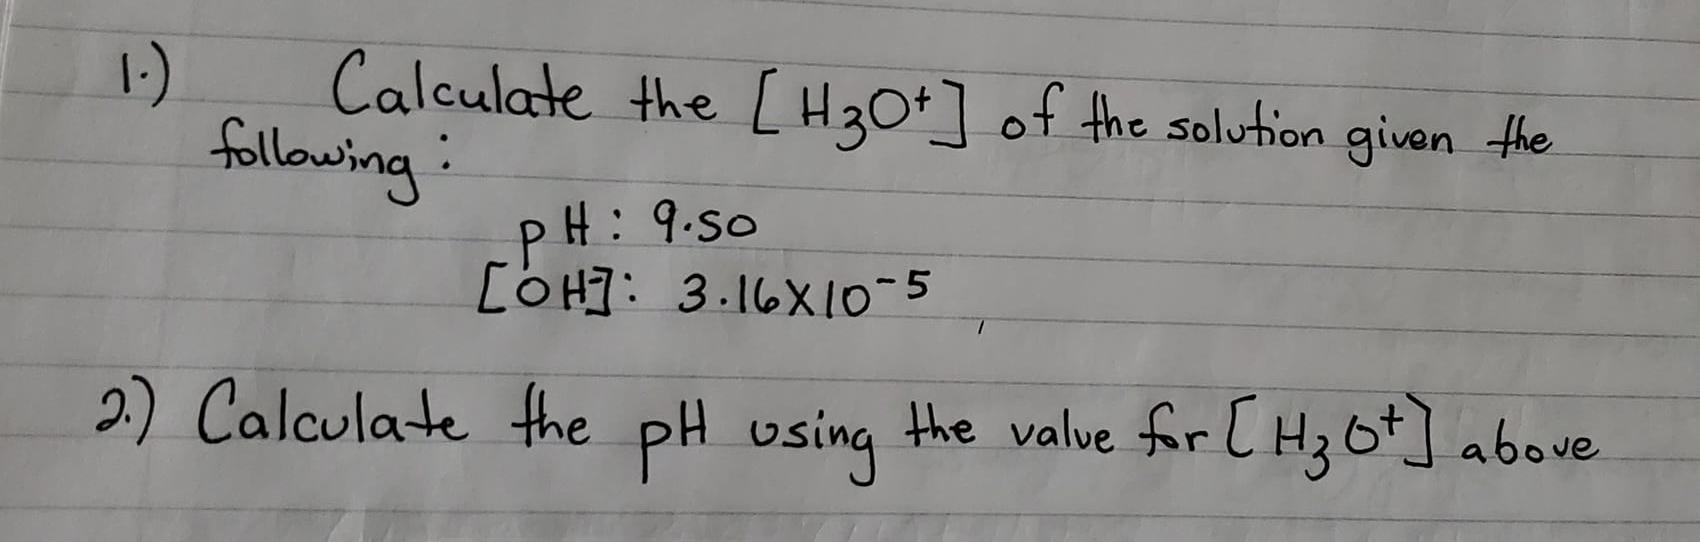 1.) Calculate the [H3O+] of the solution given the
following:
pH: 9.50
[OH-]: 3.16X10-5
2.) Calculate the pH using the value for [H3O+] above